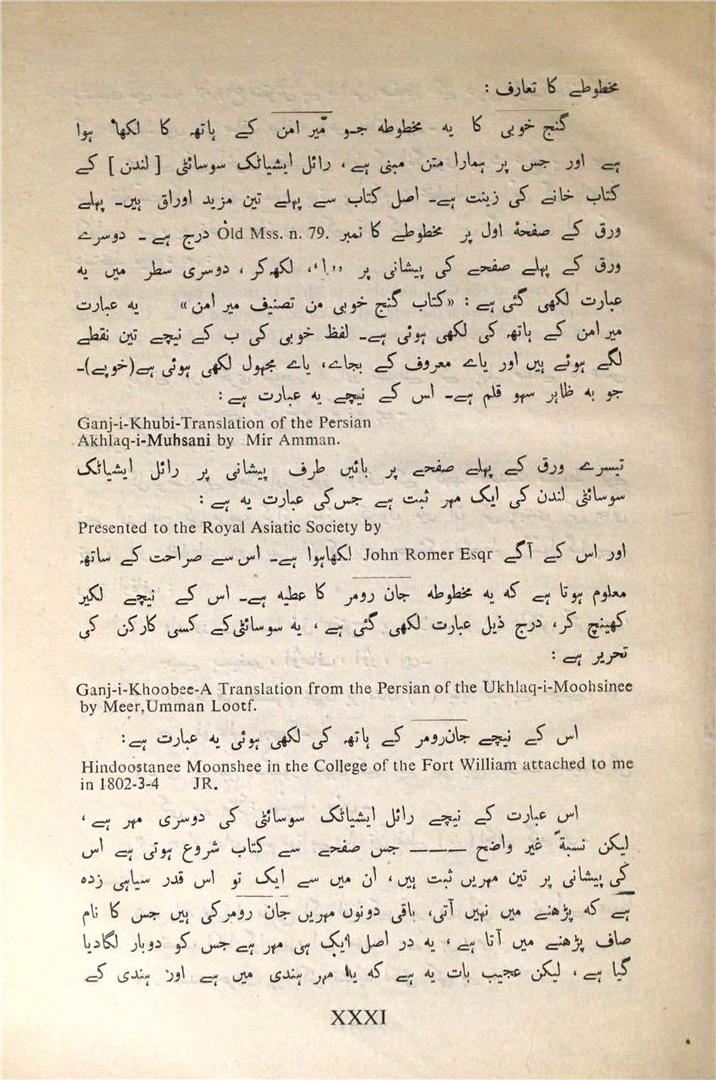 مخطوطے کا تعارف :
گنج خوبی کا یہ مخطوطہ جو میر امن کے ہاتھ کا لکھا ہوا
ہے اور جس پر ہمارا متن مبنی ہے، رائل ایشیاٹک سوسائٹی [لندن] کے
کتاب خانے کی زینت ہے۔ اصل کتاب سے پہلے تین مزید اوراق ہیں۔ پہلے
ورق کے صفحۂ اول پر مخطوطے کا نمبر Old Mss. n. 79. درج ہے ۔ دوسرے
ورق کے پہلے صفحے کی پیشانی پر ،،ا‘‘، لکھ کر ، دوسری سطر میں یہ
عبارت لکھی گئی ہے : «کتاب گنج خوبی من تصنیف میر امن» یہ عبارت
میر امن کے ہاتھ کی لکھی ہوئی ہے۔ لفظ خوبی کی ب کے نیچے تین نقطے
لگے ہوئے ہیں اور یاے معروف کے بجاے، یاے مجہول لکھی ہوئی ہے(خوپے)۔
جو بہ ظاہر سہو قلم ہے۔ اس کے نیچے یہ عبارت ہے :
Ganj-i-Khubi-Translation of the Persian
Akhlaq-i-Muhsani by Mir Amman.
تیسرے ورق کے پہلے صفحے پر بائیں طرف پیشانی پر رائل ایشیاٹک
سوسائٹی لندن کی ایک مہر ثبت ہے جس کی عبارت یہ ہے :
Presented to the Royal Asiatic Society by
اور اس کے آگے John Romer Esqr لکھا ہوا ہے۔ اس سے صراحت کے ساتھ
معلوم ہوتا ہے کہ یہ مخطوطہ جان رومر کا عطیہ ہے۔ اس کے نیچے لکیر
کھینچ کر، درج ذیل عبارت لکھی گئی ہے ، یہ سوسائٹی کے کسی کارکن کی
تحریر ہے :
Ganj-i-Khoobee-A Translation from the Persian of the Ukhlaq-i-Moohsinee
by Meer,Umman Lootf.
اس کے نیچے جان رومر کے ہاتھ کی لکھی ہوئی یہ عبارت ہے:
Hindoostanee Moonshee in the College of the Fort William attached to me
in 1802-3-4 JR.
اس عبارت کے نیچے رائل ایشیاٹک سوسائٹی کی دوسری مہر ہے ،
لیکن نسبۃً غیر واضح ——— جس صفحے سے کتاب شروع ہوتی ہے اس
کی پیشانی پر تین مہریں ثبت ہیں، ان میں سے ایک تو اس قدر سیاہی زدہ
ہے کہ پڑھنے میں نہیں آتی، باقی دونوں مہریں جان رومر کی ہیں جس کا نام
صاف پڑھنے میں آتا ہے ، یہ در اصل ایک ہی مہر ہے جس کو دوبار لگادیا
گیا ہے ، لیکن عجیب بات یہ ہے کہ یہ مہر ہندی میں ہے اور ہندی کے
XXXI